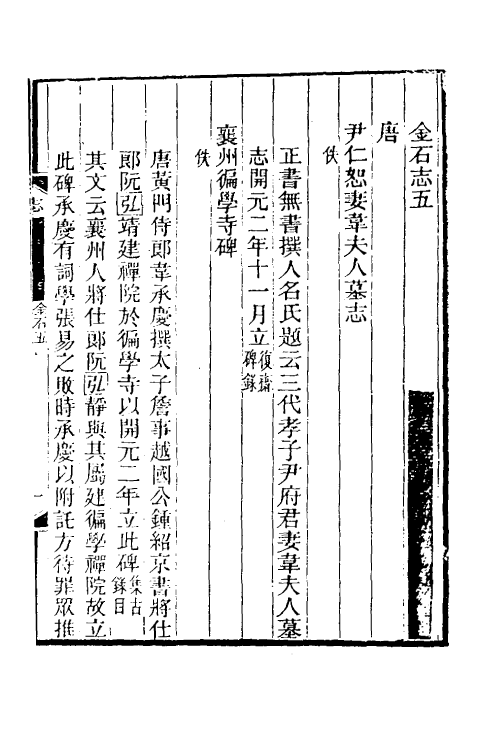 金石志五
唐
尹仁恕妻韋夫人墓志
佚
正書無書撰人名氏題云三代孝子尹府君妻韋夫人墓
志開元二年十一月立復齋碑錄
襄州徧學寺碑
佚
唐黃門侍郎韋承慶撰太子詹事越國公鍾紹京書將仕
郎阮弘靖建禪院於徧學寺以開元二年立此碑集古錄目
其文云襄州人將仕郎阮弘靜與其屬建徧學禪院故立
此碑承慶有詞學張易之敗時承慶以附託方待罪眾推
志
金石五
一